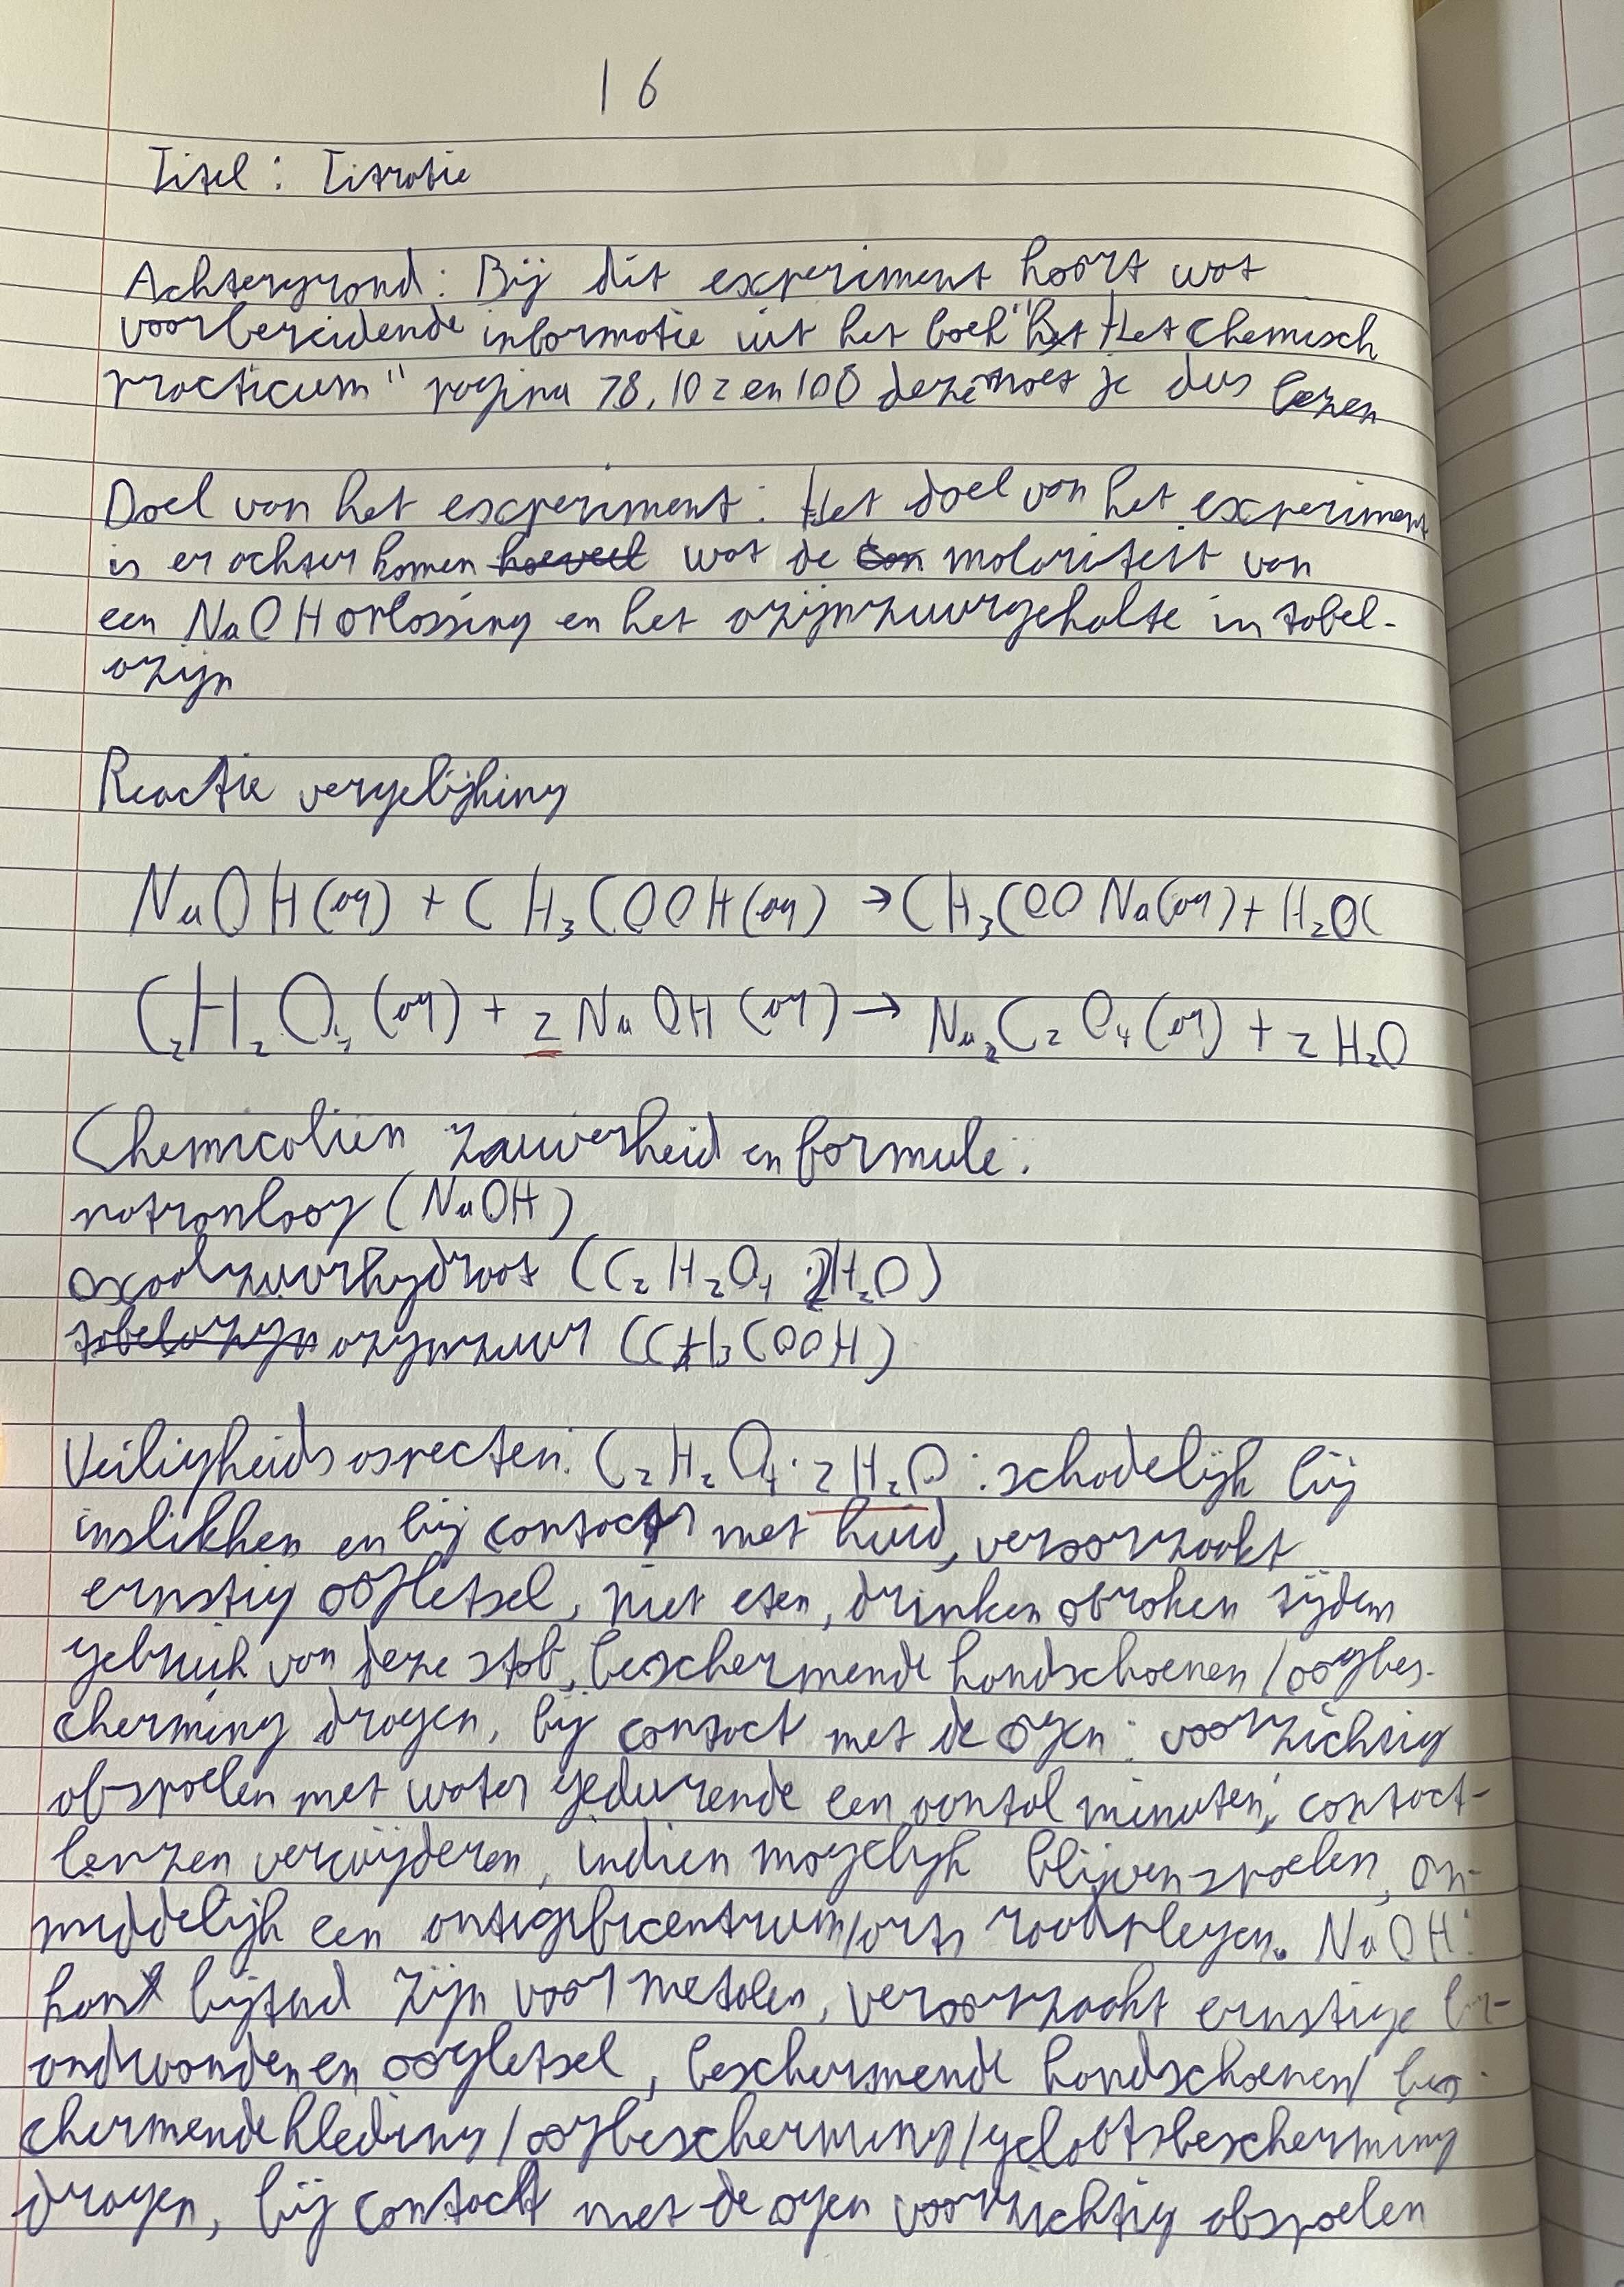 16
Titel: Titratie
Achtergrond: Bij dit experiment hoort wat
voorbereidende informatie uit het boek "het Het Chemisch
practicum" pagina 78, 102 en 108 deze moet je dus lezen
Doel van het experiment: Het doel van het experiment
is er achter komen hoeveel wat de con molariteit van
een NaOH oplossing en het azijnzuurgehalte in tafel-
azijn
Reactie vergelijking
NaOH(aq) + CH₃COOH(aq) → CH₃COONa(aq) + H₂O(
C₂H₂O₄(aq) + 2 NaOH(aq) → Na₂C₂O₄(aq) + 2 H₂O
Chemicaliën zuiverheid en formule:
natronloog (NaOH)
oxaalzuurhydraat (C₂H₂O₄ · 2H₂O)
tafelazijn azijnzuur (CH₃COOH)
Veiligheidsaspecten: C₂H₂O₄ · 2 H₂O : schadelijk bij
inslikken en bij contact met huid, veroorzaakt
ernstig oogletsel, niet eten, drinken of roken tijdens
gebruik van deze stof, beschermende handschoenen/oogbes-
cherming dragen, bij contact met de ogen: voorzichtig
afspoelen met water gedurende een aantal minuten; contact-
lenzen verwijderen, indien mogelijk blijven spoelen, on-
middelijk een antigifcentrum/arts raadplegen. NaOH:
kant bijtend zijn voor metalen, veroorzaakt ernstige br-
andwonden en oogletsel, beschermende handschoenen/bes-
chermende kleding/oogbescherming/gelaatsbescherming
dragen, bij contact met de ogen voorzichtig afspoelen